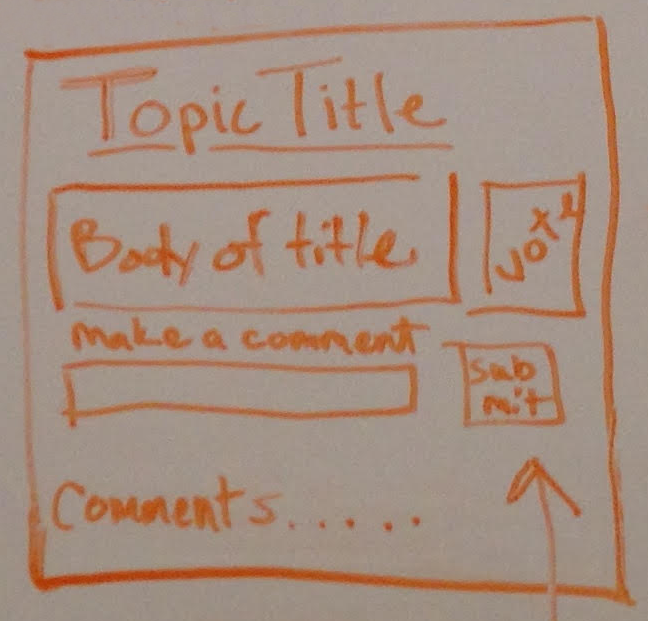 Topic Title
Body of title
make a comment
sub
mit
Comments.....